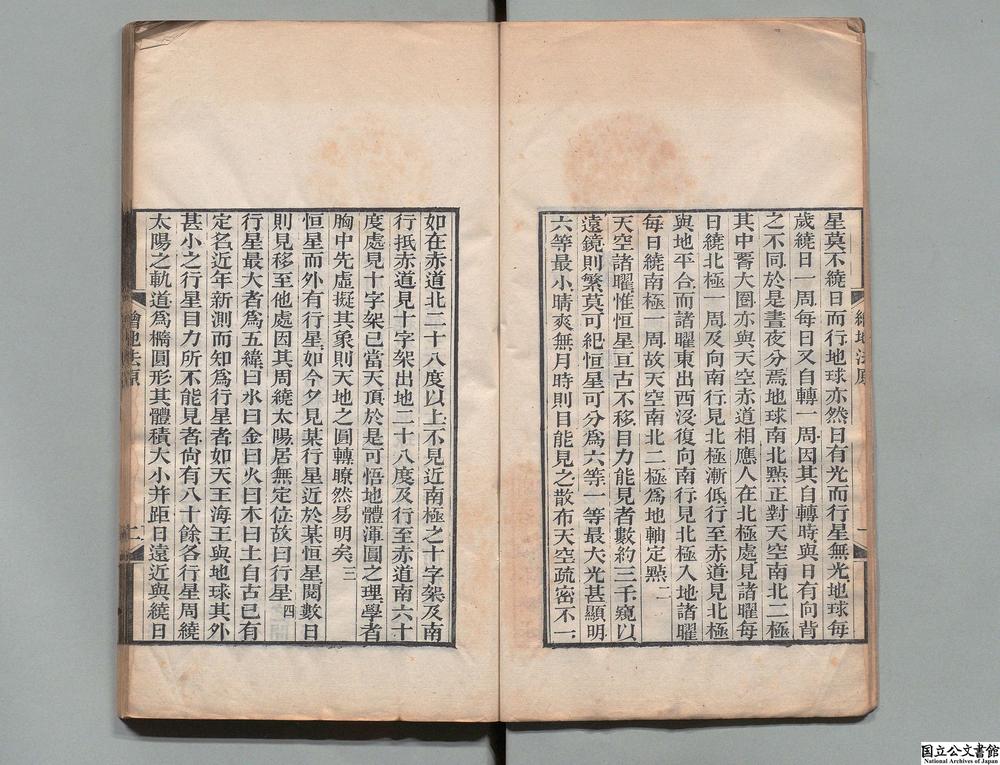 星莫不繞日而行地球亦然日有光而行星無光地球每
歲繞日一周每日又自轉一周因其自轉時與日有向背
之不同於是晝夜分焉地球南北㸃正對天空南北二極
其中腎大圈亦與天空赤道相應人在北極處見諸曜每
日繞北極一周及向南行見北極漸低行至赤道見北極
與地平合而諸曜東出西沒復向南行見北極入地諸曜
每日繞南極一周故天空南北二極為地軸定㸃二
天空諸曜惟恒星亘古不移目力能見者數約三千窺以
遠鏡則繁莫可紀恒星可分為六等一等最大光甚顯明
六等最小晴爽無月時則目能見之散布天空疏密不一
繪地法原
一
如在赤道北二十八度以上不見近南極之十字架及南
行抵赤道見十字架出地二十八度及行至赤道南六十
度處見十字架已當天頂於是可悟地體渾圓之理學者
胸中先虛擬其象則天地之圓轉暸然易明矣三
恒星而外有行星如今夕見某行星近於某恒星閱數日
則見移至他處因其周繞太陽居無定位故曰行星四
行星最大者為五緯曰水曰金曰火曰木曰土自古已有
定名近年新測而知為行星者如天王海王與地球其外
甚小之行星目力所不能見者尙有八十餘各行星周繞
太陽之軌道為橢圓形其體積大小并距日遠近與繞日
繪地法原
二
国立公文書館
National Archives of Japan